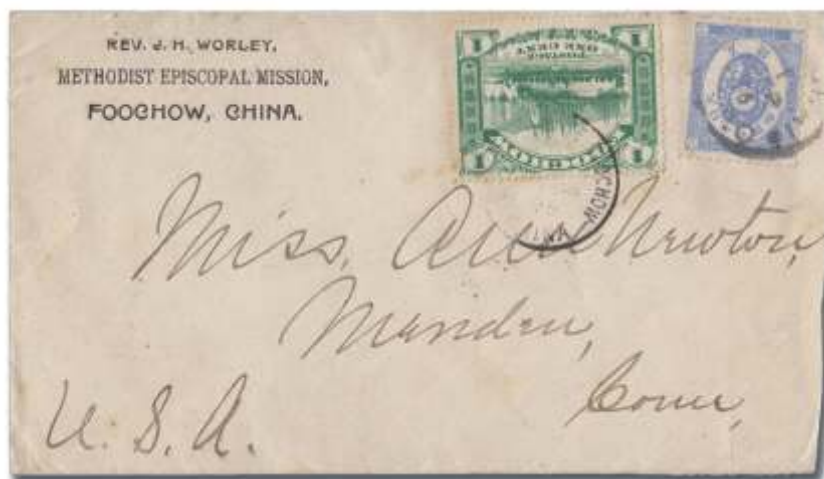 REV. J. H. WORLEY,
METHODIST EPISCOPAL MISSION,
FOOCHOW, CHINA.
1 1
ONE CENT
1 1
Miss. Newton,
Meriden,
Conn,
U. S. A.